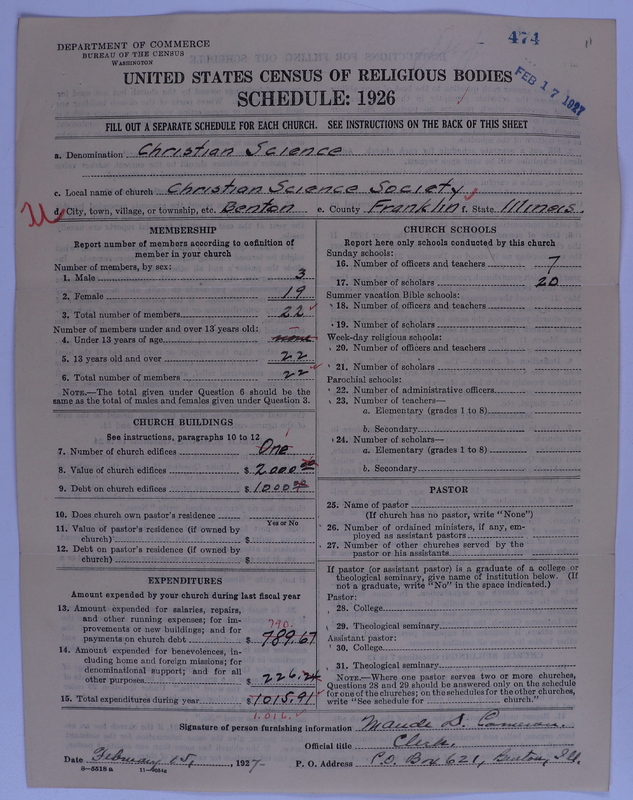 474
DEPARTMENT OF COMMERCE
BUREAU OF THE CENSUS
WASHINGTON
UNITED STATES CENSUS OF RELIGIOUS BODIES
FEB 17 1927
SCHEDULE: 1926
FILL OUT A SEPARATE SCHEDULE FOR EACH CHURCH. SEE INSTRUCTIONS ON THE BACK OF THIS SHEET
a. Denomination Christian Science
c. Local name of church Christian Science Society
d. City, town, village, or township, etc. Benton e. County Franklin f. State Illinois.
MEMBERSHIP
Report number of members according to definition of
member in your church
Number of members, by sex:
1. Male 3
2. Female 19
3. Total number of members 22
Number of members under and over 13 years old:
4. Under 13 years of age none
5. 13 years old and over 22
6. Total number of members 22
NOTE.—The total given under Question 6 should be
same as the total of males and females given under Question 3.
CHURCH BUILDINGS
See instructions, paragraphs 10 to 12
7. Number of church edifices One
8. Value of church edifices $ 2000 00
9. Debt on church edifices $ 1000 00
10. Does church own pastor's residence
Yes or No
11. Value of pastor's residence (if owned by
church) $
12. Debt on pastor's residence (if owned by
church) $
EXPENDITURES
Amount expended by your church during last fiscal year
13. Amount expended for salaries, repairs,
and other running expenses; for im-
provements or new buildings; and for
payments on church debt $ 789.67
790.
14. Amount expended for benevolences, in-
cluding home and foreign missions; for
denominational support; and for all
other purposes $ 226.24
15. Total expenditures during year $ 1015.91
1,016.
CHURCH SCHOOLS
Report here only schools conducted by this church
Sunday schools:
16. Number of officers and teachers 7
17. Number of scholars 20
Summer vacation Bible schools:
18. Number of officers and teachers
19. Number of scholars
Week-day religious schools:
20. Number of officers and teachers
21. Number of scholars
Parochial schools:
22. Number of administrative officers
23. Number of teachers—
a. Elementary (grades 1 to 8)
b. Secondary
24. Number of scholars—
a. Elementary (grades 1 to 8)
b. Secondary
PASTOR
25. Name of pastor
(If church has no pastor, write "None")
26. Number of ordained ministers, if any, em-
ployed as assistant pastors
27. Number of other churches served by the
pastor or his assistants
If pastor (or assistant pastor) is a graduate of a college or
theological seminary, give name of institution below. (If
not a graduate, write "No" in the space indicated.)
Pastor:
28. College
29. Theological seminary
Assistant pastor:
30. College
31. Theological seminary
NOTE.—Where one pastor serves two or more churches,
Questions 28 and 29 should be answered only on the schedule
for one of the churches; on the schedules for the other churches,
write "See schedule for church."
Signature of person furnishing information Maude D. Cameron.
Official title Clerk.
Date February 15, 1927- P. O. Address P.O. Box 621, Benton, Ill.
8—5518 a